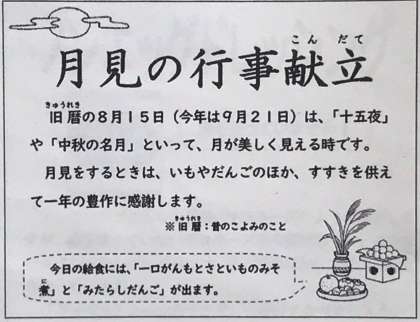 こんだて
月見の行事献立
きゅうれき
旧暦の8月15日（今年は9月21日）は、「十五夜」
や「中秋の名月」といって、月が美しく見える時です。
月見をするときは、いもやだんごのほか、すすきを供え
て一年の豊作に感謝します。
きゅうれき
※旧暦：昔のこよみのこと
今日の給食には、「一口がんもとさといものみそ
に
煮」と「みたらしだんご」が出ます。